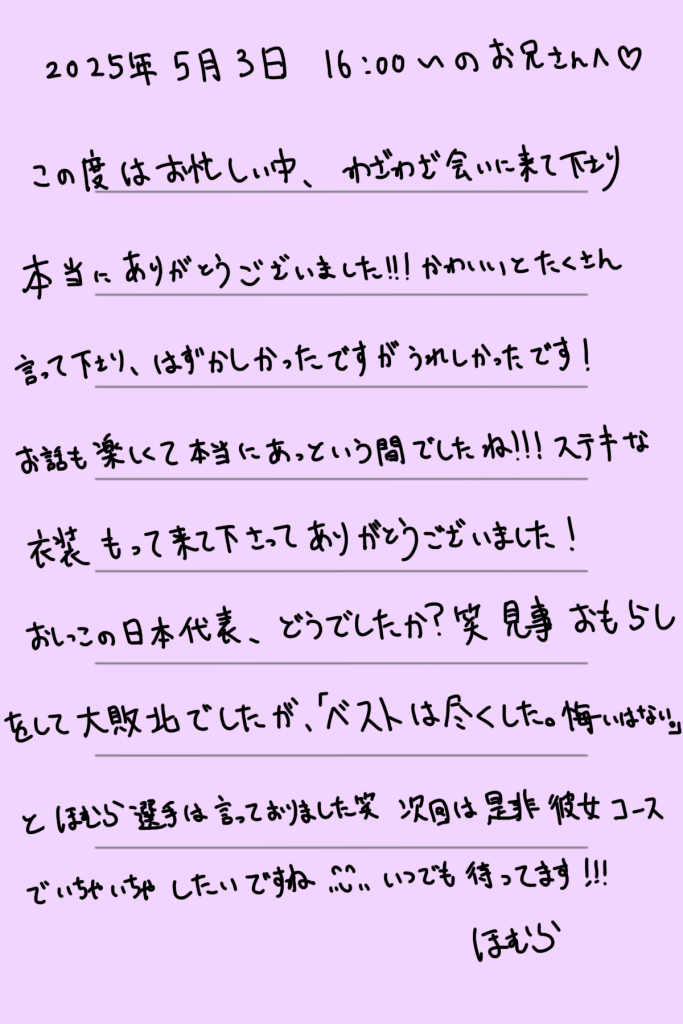 2025年5月3日 16:00〜のお兄さんへ♡
この度はお忙しい中、わざわざ会いに来て下さり
本当にありがとうございました!!!かわいいとたくさん
言って下さり、はずかしかったですがうれしかったです!
お話も楽しくて本当にあっという間でしたね!!!ステキな
衣装もって来て下さってありがとうございました!
おしっこの日本代表、どうでしたか?笑 見事おもらし
をして大敗北でしたが、「ベストは尽くした。悔いはない。」
とほむら選手は言っておりました笑 次回は是非彼女コース
でいちゃいちゃしたいですね いつでも待ってます!!!
ほむら